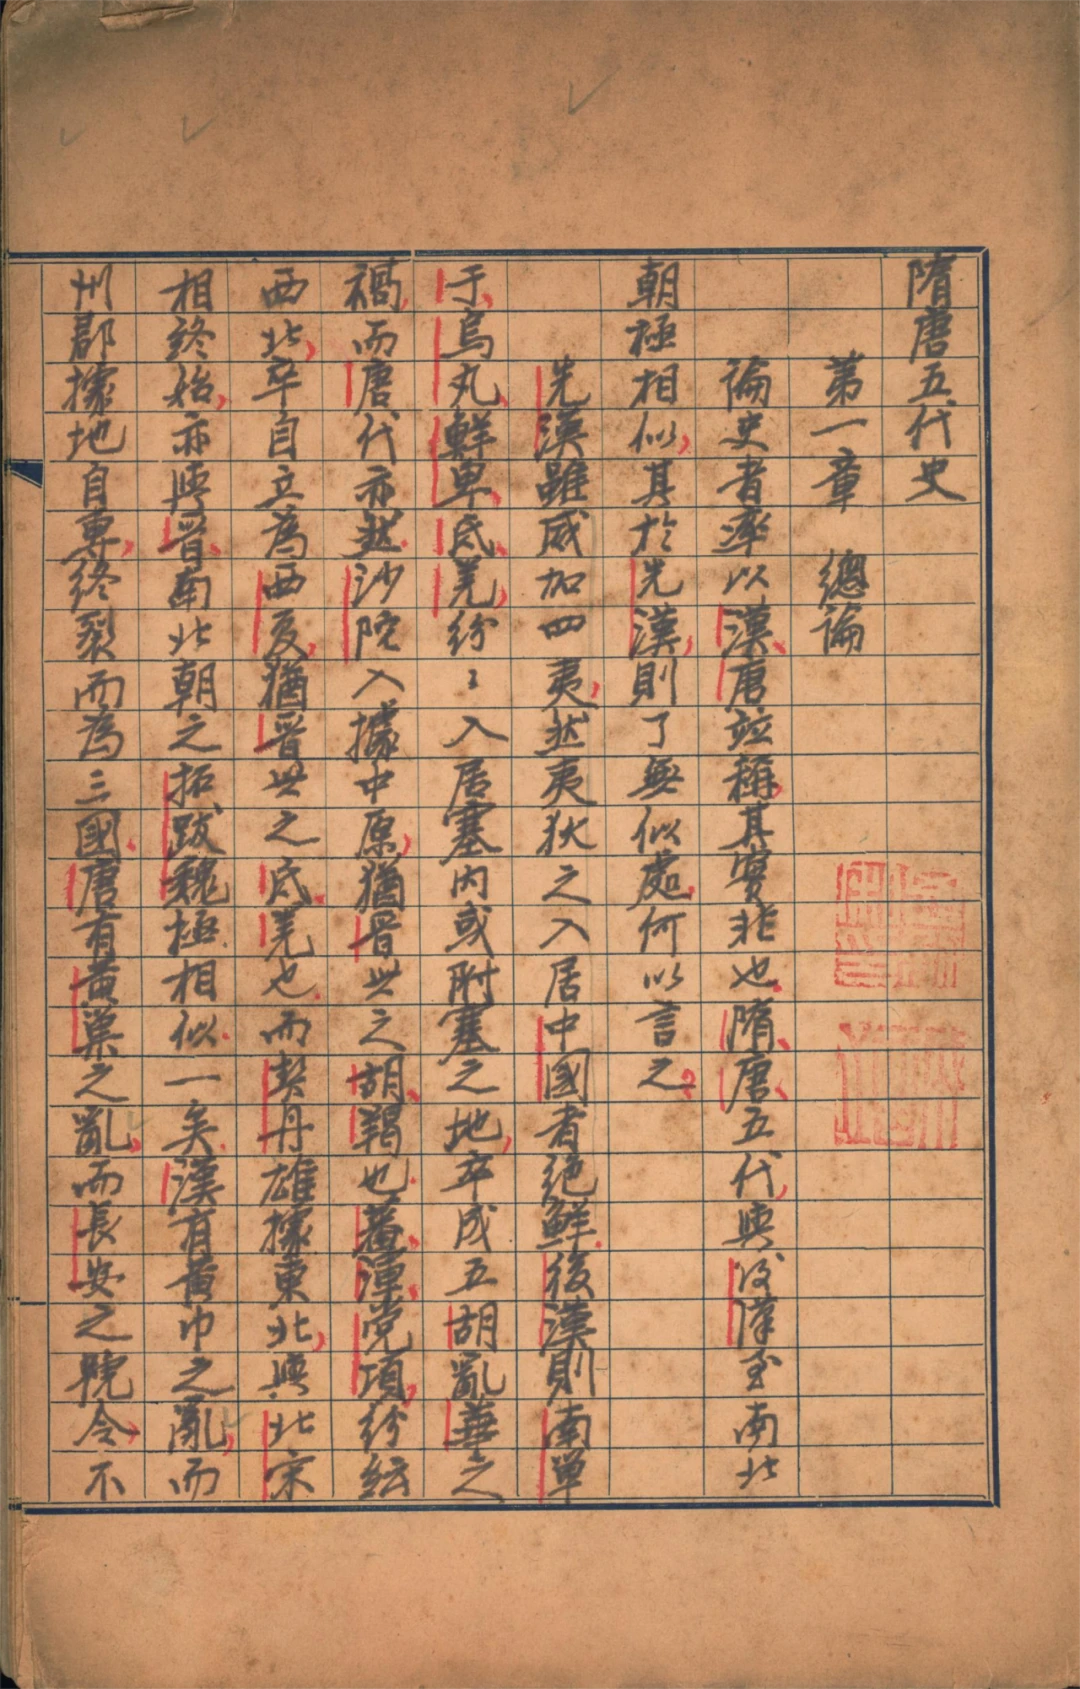 隋唐五代史
第一章 總論
論史者率以漢、唐竝稱,其實非也。隋、唐、五代,與後漢至南北
朝極相似,其於先漢,則了無似處,何以言之?
先漢雖威加四夷,然夷狄之入居中國者絕鮮。後漢則南單
于、烏丸、鮮卑、氐、羌,紛〻入居塞內或附塞之地,卒成五胡亂華之
禍,而唐代亦然。沙陀入據中原,猶晉世之胡、羯也。蕃、渾、党項,紛紜
西北,卒自立為西夏,猶晉世之氐、羌也。而契丹雄據東北,與北宋
相終始,亦與晉南北朝之拓跋魏極相似。一矣。漢有黃巾之亂,而
州郡據地自專,終裂而為三國。唐有黃巢之亂,而長安之號令,不